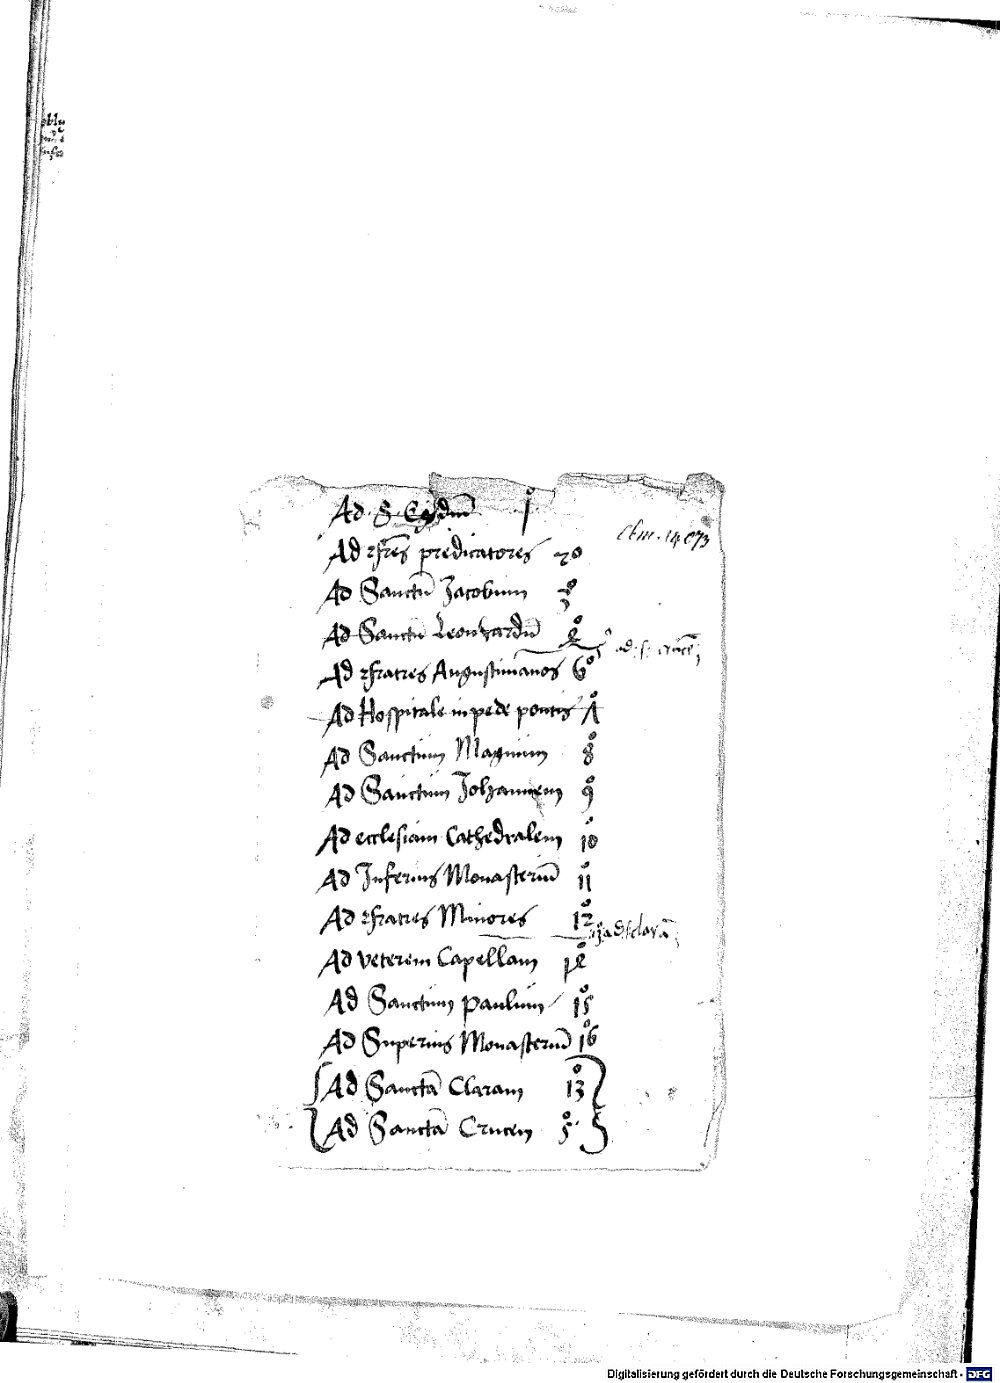 Ad · S · Egidiū 1°
Clm. 14073
Ad ffrēs predicatores 2°
Ad Sanctū Jacobum 3°
Ad Sanctū Leonhardū 4°
5° ad · s · crucē
Ad ffratres Augustinianos 6°
Ad Hospitale in pede pontis 7°
Ad Sanctum Magnum 8°
Ad Sanctum Johannem 9°
Ad ecclesiam Cathedralem 10°
Ad Inferius Monasteriū 11°
Ad ffratres Minores 12°
13° ad s clarā
Ad veterem Capellam 14°
Ad Sanctum Paulum 15°
Ad Superius Monasteriū 16°
Ad Sanctā Claram 13°
Ad Sanctā Crucem 5°
Digitalisierung gefördert durch die Deutsche Forschungsgemeinschaft - DFG